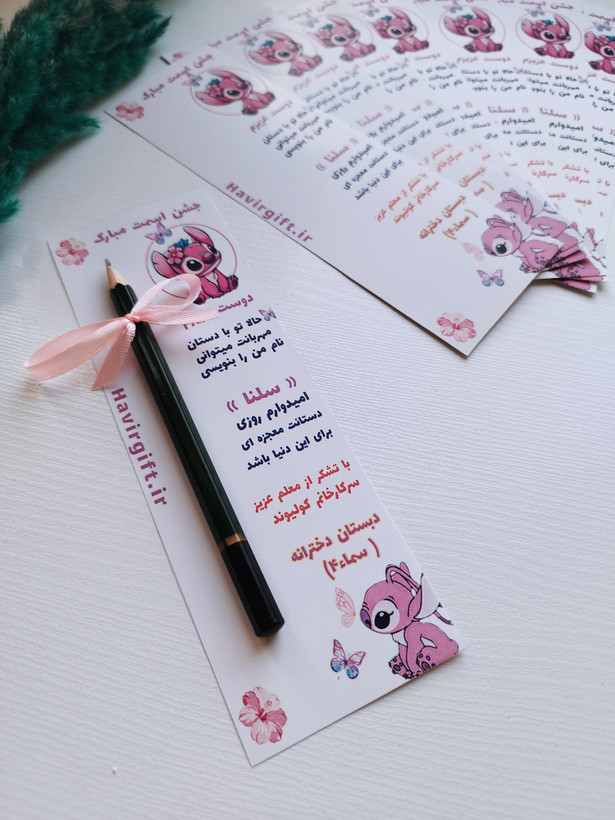 جشن اسمت مبارک
دوست عزیزم
حالا تو با دستان
مهربانت میتوانی
نام من را بنویسی
(( سلنا ))
امیدوارم روزی
دستانت معجزه ای
برای این دنیا باشد
با تشکر از معلم عزیز
سرکارخانم کولیوند
دبستان دخترانه
( سماء۴)
Havirgift.ir
جشن اسمت مبارک
دوست عزیزم
حالا تو با دستان
مهربانت میتوانی
نام من را بنویسی
(( سلنا ))
امیدوارم روزی
دستانت معجزه ای
برای این دنیا باشد
با تشکر از معلم عزیز
سرکارخانم کولیوند
دبستان دخترانه
( سماء۴)
Havirgift.ir